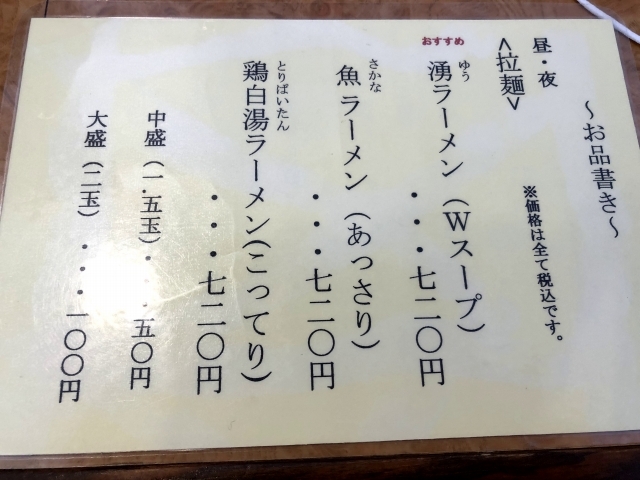 ～お品書き～
※価格は全て税込です。
昼・夜
<拉麺>
おすすめ
ゆう
湧ラーメン（Wスープ）
・・・七二〇円
さかな
魚ラーメン（あっさり）
・・・七二〇円
とりぱいたん
鶏白湯ラーメン(こってり)
・・・七二〇円
中盛（一.五玉）・・・五〇円
大盛（二玉）・・・一〇〇円